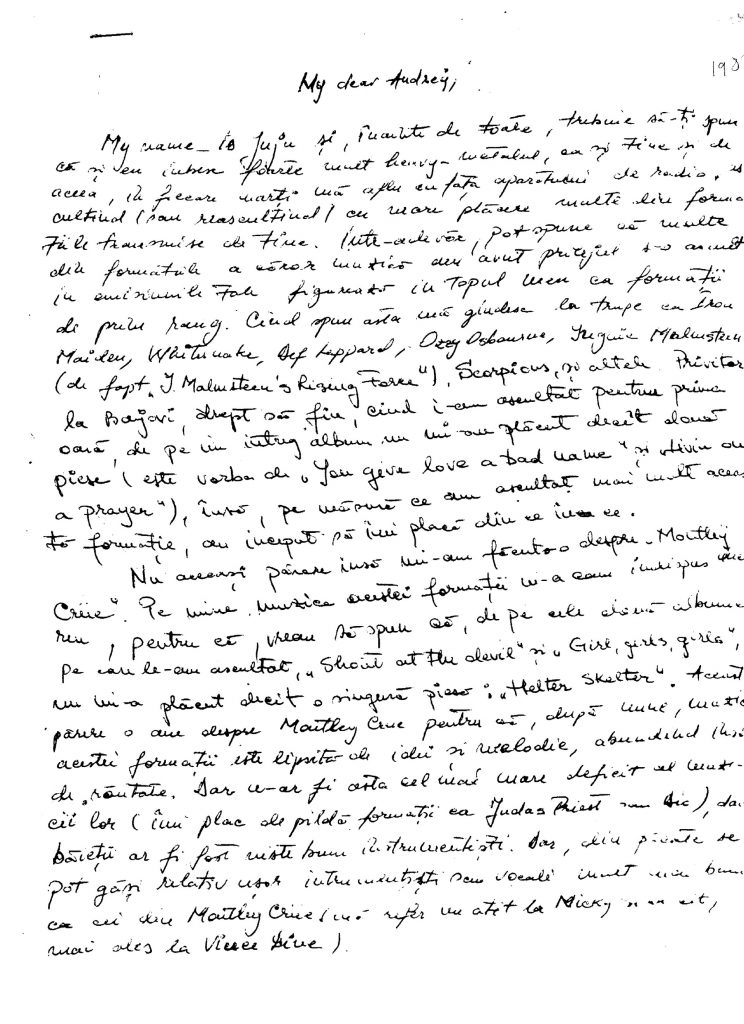 198
My dear Andrei,
My name is Juju și, înainte de toate, trebuie să-ți spun
că și eu iubesc foarte mult heavy-metalul, ca și tine și de
aceea, în fiecare marți mă aflu în fața aparatului de radio,
cultînd (sau reascultînd) cu mare plăcere multe din forma
țiile transmise de tine. Într-adevăr, pot spune că multe
din formațiile a căror muzică am avut prilejul s-o ascult
în emisiunile tale figurează în topul meu ca formații
de prim rang. Cînd spun asta mă gîndesc la trupe ca Iron
Maiden, Whitesnake, Def Leppard, Ozzy Osbourne, Yngwie Malmsteen
(de fapt „Y. Malmsteen's Rising Force"), Scorpions, și altele. Privitor
la Bonjovi, drept să fiu, cînd i-am ascultat pentru prima
oară, de pe un întreg album nu mi-au plăcut decît două
piese (este vorba de „You give love a bad name" și „Livin on
a prayer"), însă, pe măsură ce am ascultat mai mult aceas
tă formație, au început să îmi placă din ce în ce.
Nu aceeași părere însă mi-am făcut-o despre „Moutley
Crüe". Pe mine muzica acestei formații m-a cam indispus
reu, pentru că, vreau să spun că, de pe cele două albume
pe care le-am ascultat, „Shout at the devil" și „Girl, girls, girls",
nu mi-a plăcut decît o singură piesă: „Helter Skelter". Aceast
părere o am despre Moutley Crue pentru că, după mine, muzic
acestei formații este lipsită de idei și melodie, abundînd însă
de „răutate. Dar n-ar fi asta cel mai mare deficit al muzi-
cii lor (îmi plac de pildă formații ca Judas Priest sau Dio), dac
băieții ar fi fost niște buni instrumentiști. Dar, din păcate se
pot găsi relativ ușor intrumentiști sau vocali mult mai buni
ca cei din Moutley Crue (mă refer nu atît la Nicky cît,
mai ales la Vince).